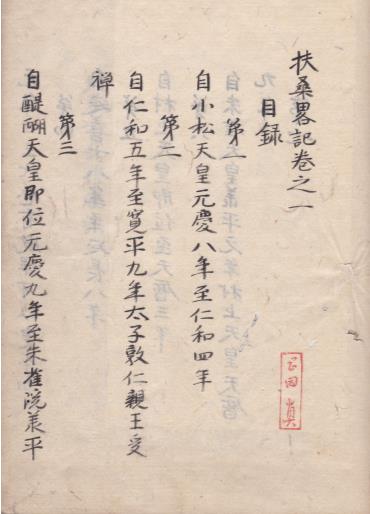 扶桑畧記卷之一
目録
第一
自小松天皇元慶八年至仁和四年
第二
自仁和五年至寛平九年太子敦仁親王受
禅
第三
自醍醐天皇即位元慶九年至朱雀院承平
田眞